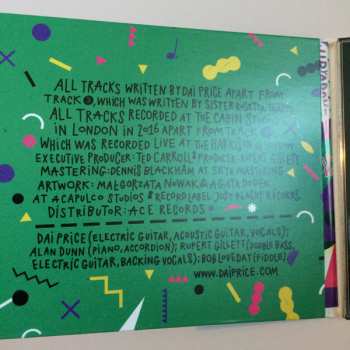 ALL TRACKS WRITTEN BY DAI PRICE APART FROM
TRACK 3, WHICH WAS WRITTEN BY SISTER
ALL TRACKS RECORDED AT THE CABIN
IN LONDON IN 2016 APART FROM TRACK
WHICH WAS RECORDED LIVE AT THE
EXECUTIVE PRODUCER: TED CARROLL PRODUCER: RUPERT GILLETT
MASTERING: DENNIS BLACKHAM AT SKYE MASTERING
ARTWORK: MALGORZATA NOWAK & AGATA DUDEK
AT ACAPULCO STUDIOS RECORD LABEL: JOE'S BEACHY RECORDS
DISTRIBUTOR: ACE RECORDS
DAI PRICE (ELECTRIC GUITAR, ACOUSTIC GUITAR, VOCALS);
ALAN DUNN (PIANO, ACCORDION); RUPERT GILLETT (DOUBLE BASS,
ELECTRIC GUITAR, BACKING VOCALS); BOB LOVEDAY (FIDDLE)
WWW.DAIPRICE.COM